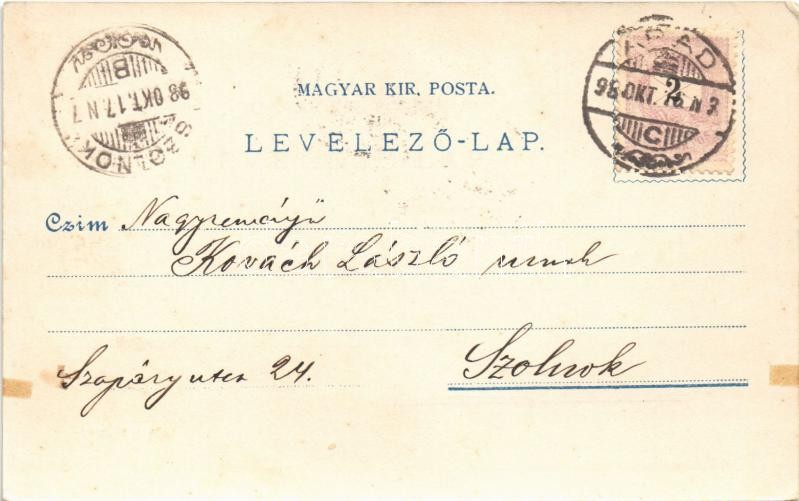 MAGYAR KIR. POSTA.
LEVELEZŐ-LAP.
SZOLNOK
98 OKT. 17. N 7
B
ARAD
98 OKT. 16 N 3
C
2
Czim Nagyreményű
Kovách László urnak
Szapáry utca 24.
Szolnok